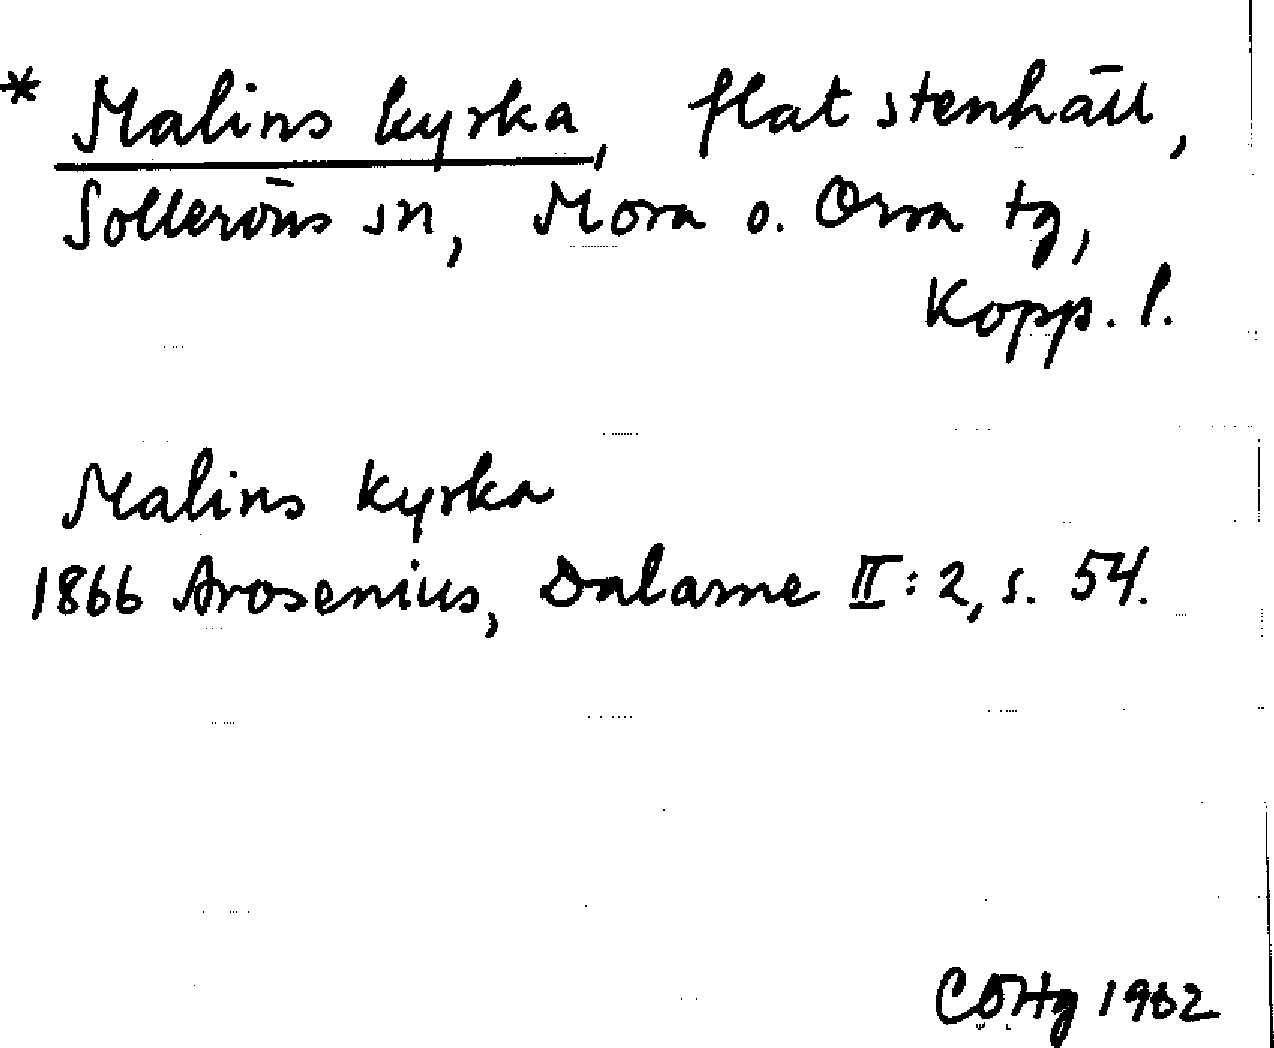 * Malins kyrka, flat stenhäll,
Solleröns sn, Mora o. Orsa tg,
Kopp. l.
Malins kyrka
1866 Arosenius, Dalarne II: 2, s. 54.
1962